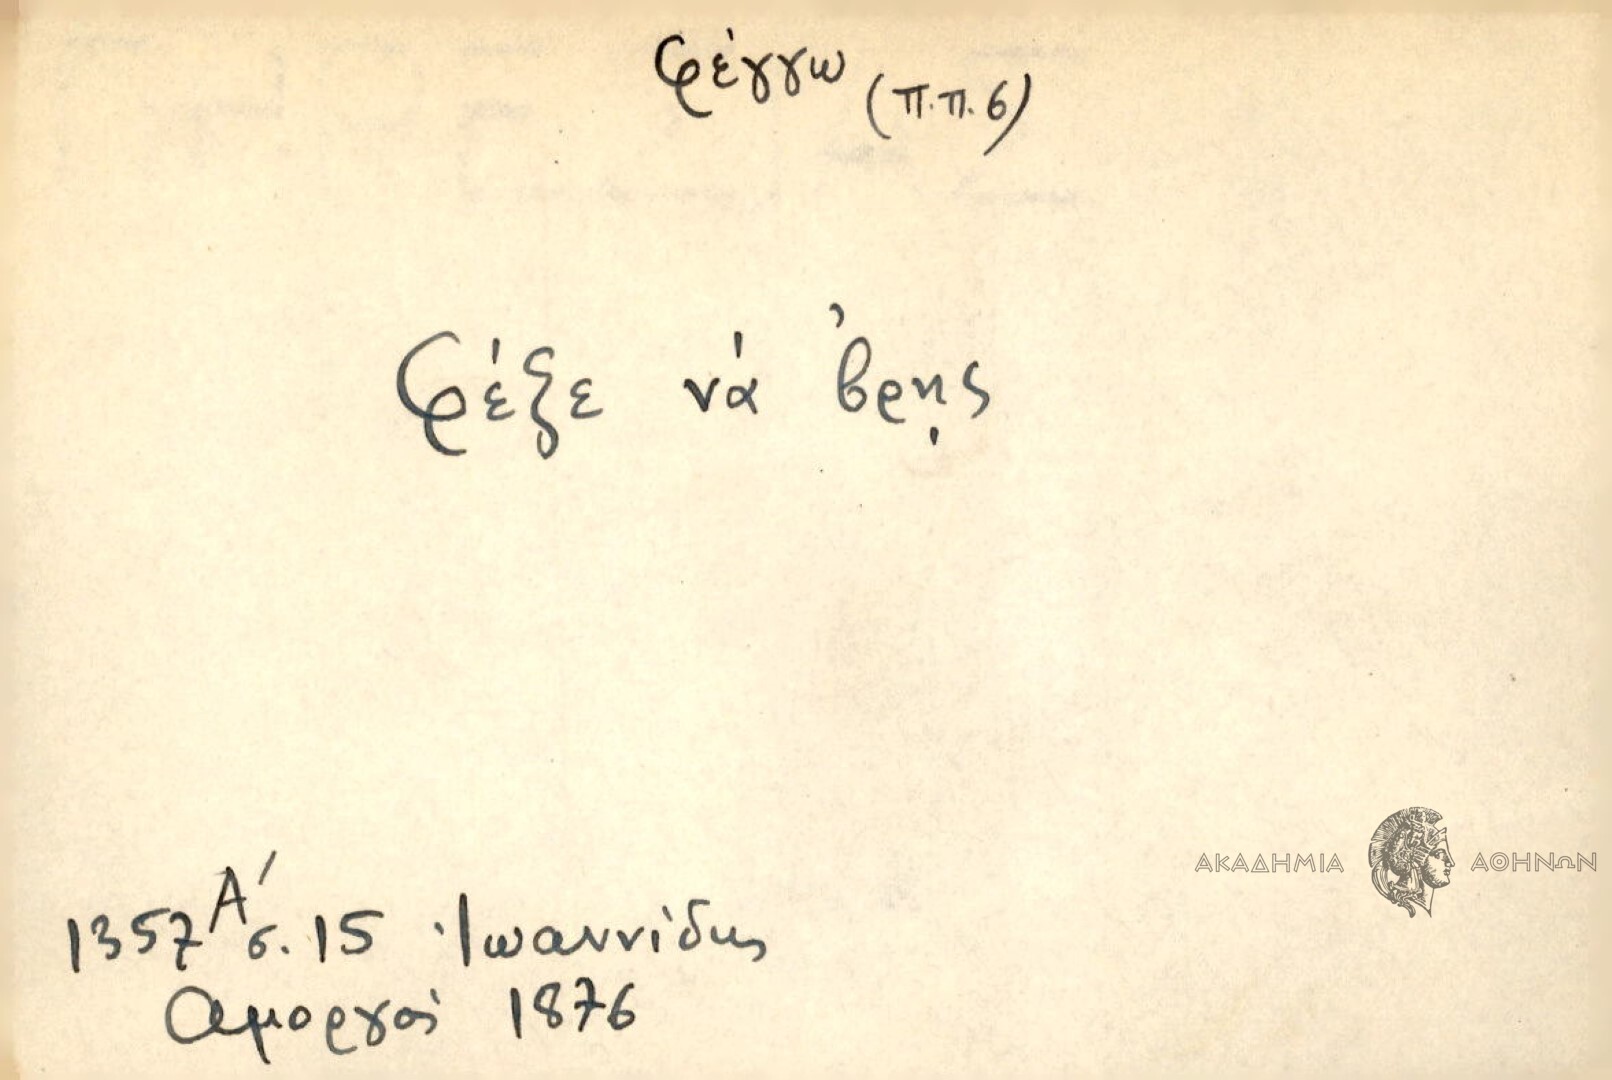 φέγγω (π.π. 6)
Φέξε νά 'βρῃς
ΑΚΑΔΗΜΙΑ ΑΘΗΝΩΝ
1357 Α΄ σ. 15 Ἰωαννίδης
Ἀμοργός 1876